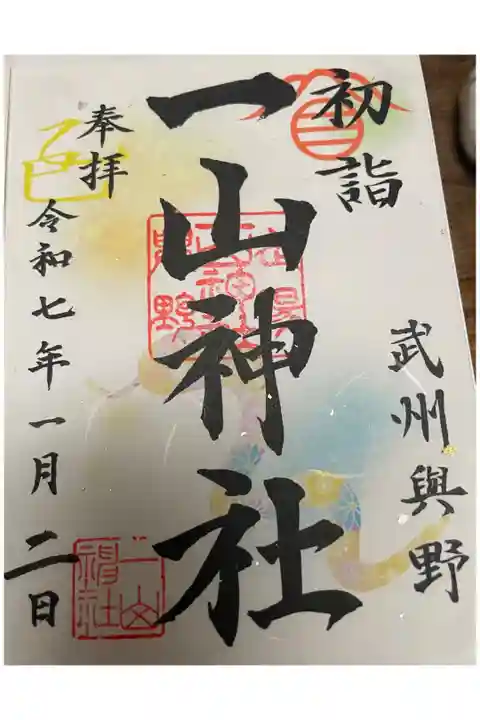 初詣
武州與野
一山神社
奉拝
令和七年一月二日